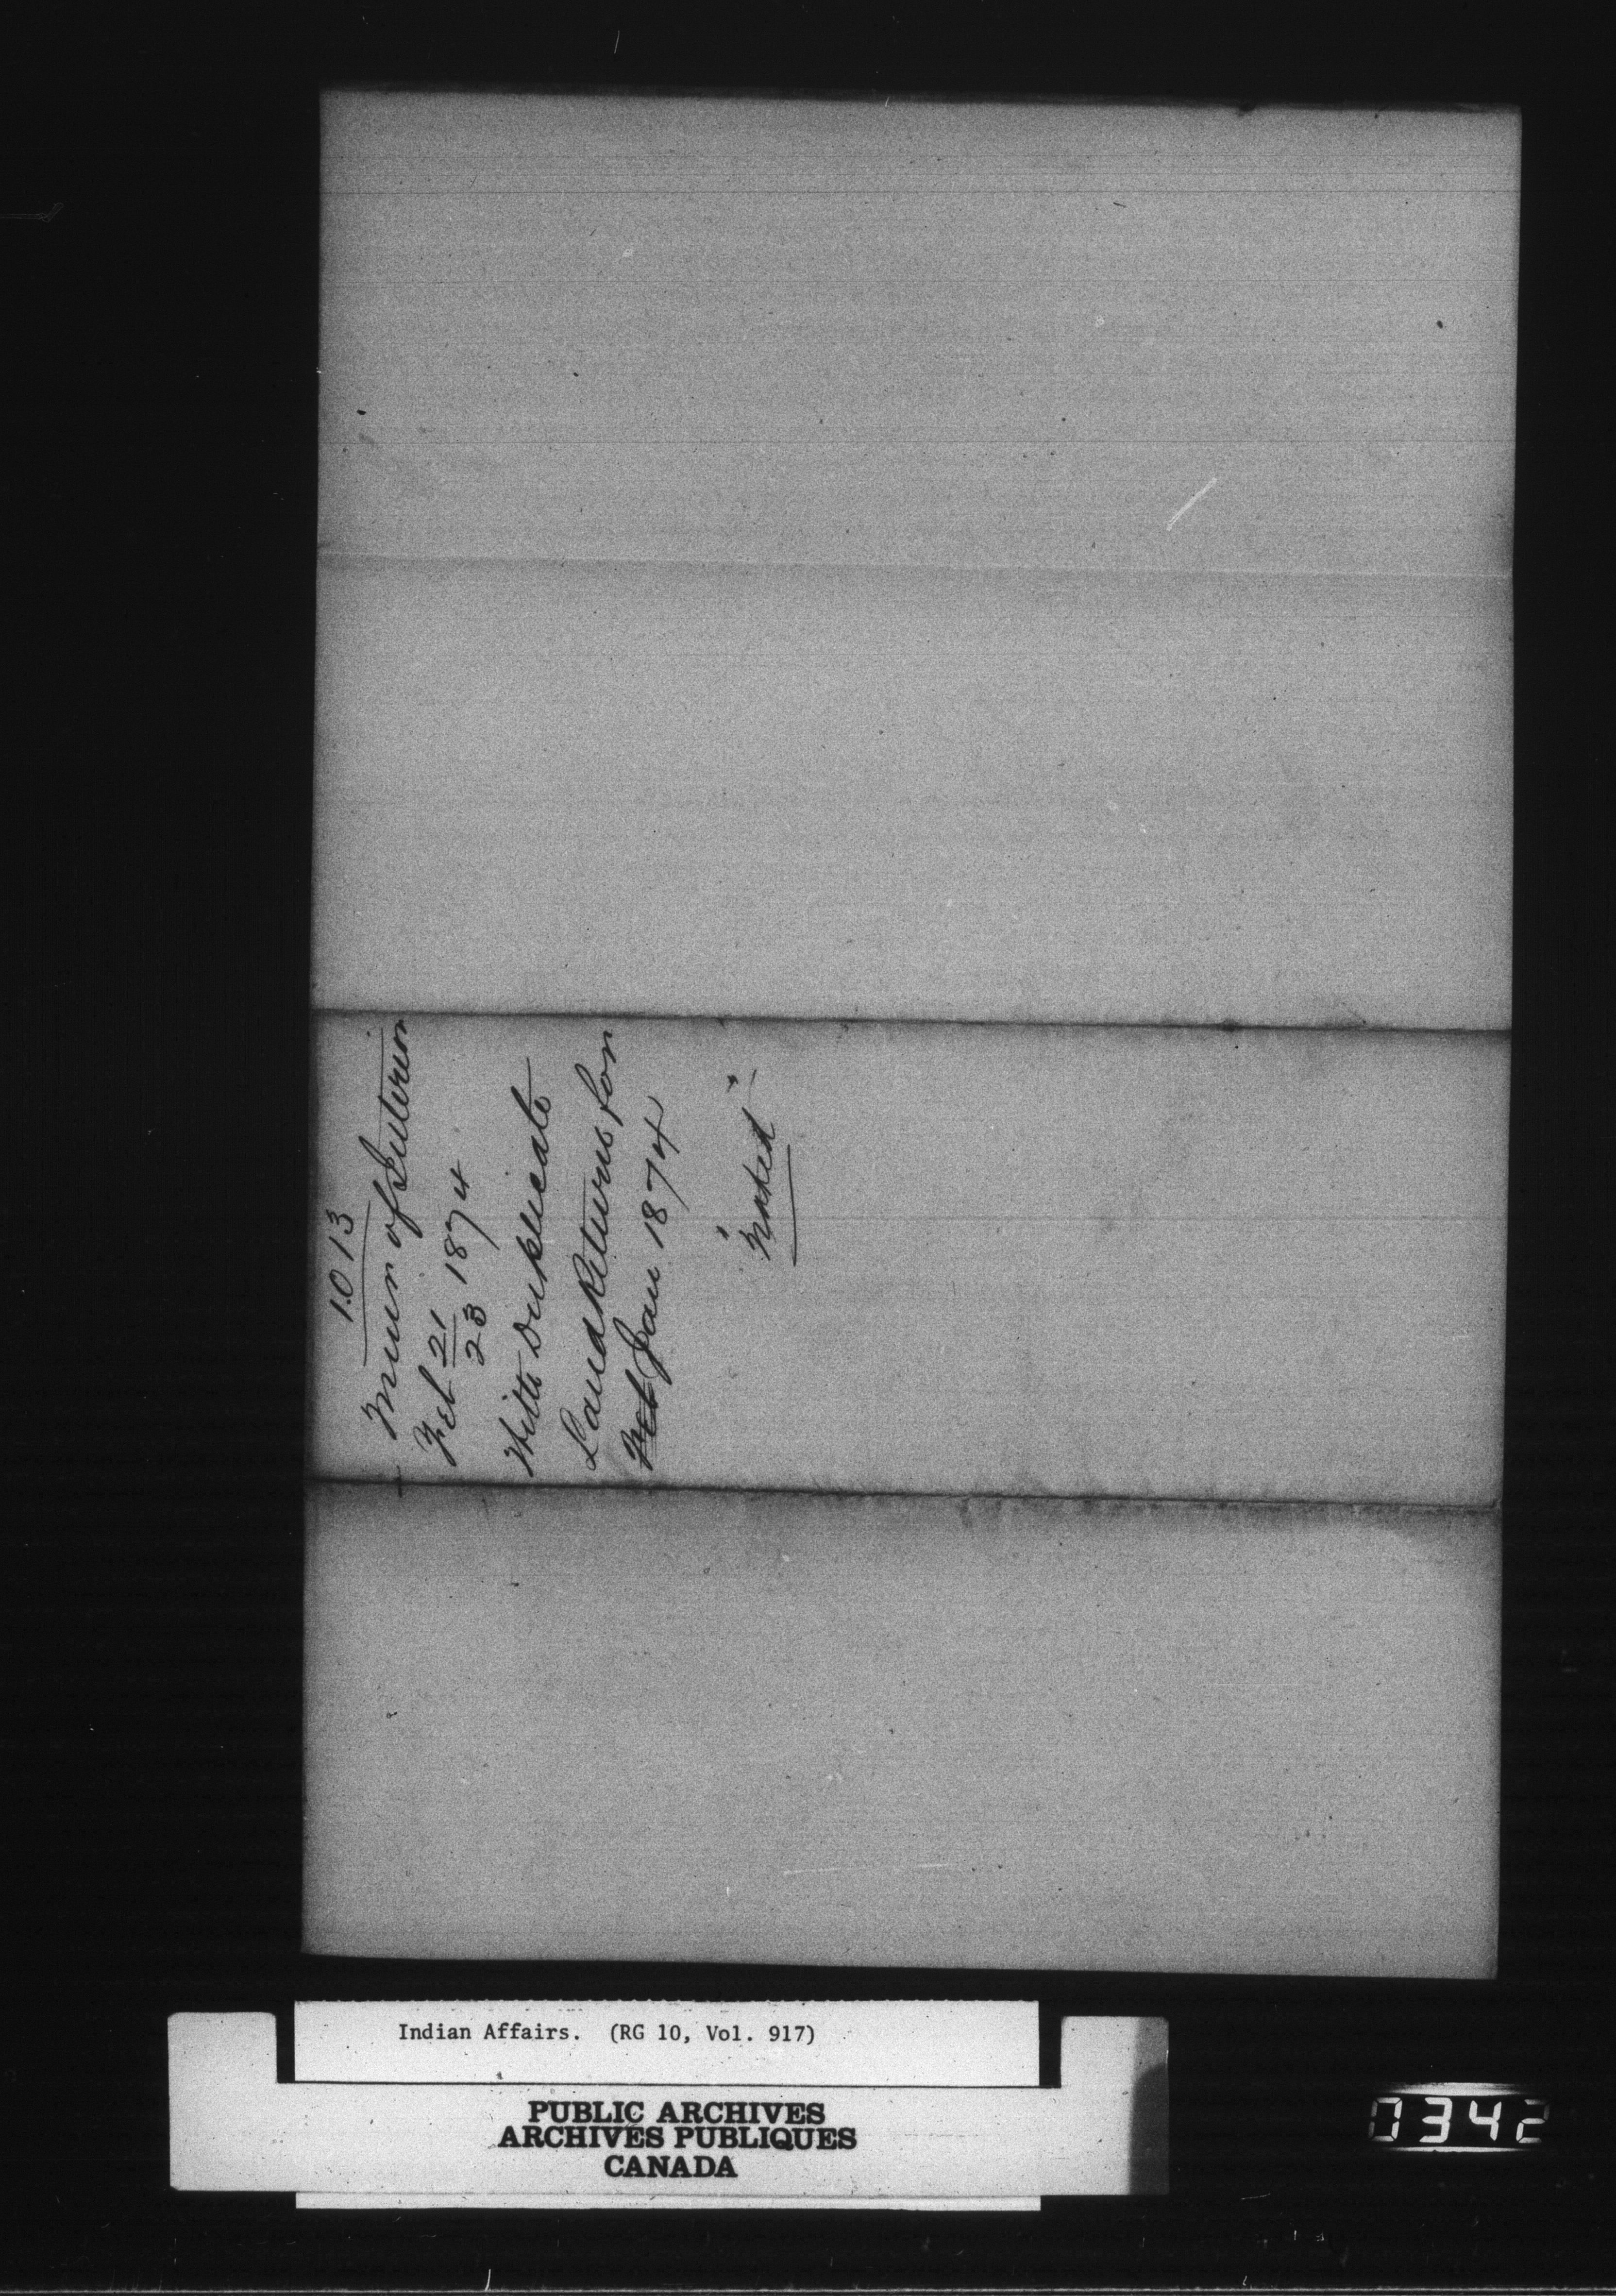 1013
Minr of Interior
Feb 21/23 1874
With Duplicate
Land Returns for
Feb Jan 1874
"Noted"
Indian Affairs. (RG 10, Vol. 917)
PUBLIC ARCHIVES
ARCHIVES PUBLIQUES
CANADA
0342